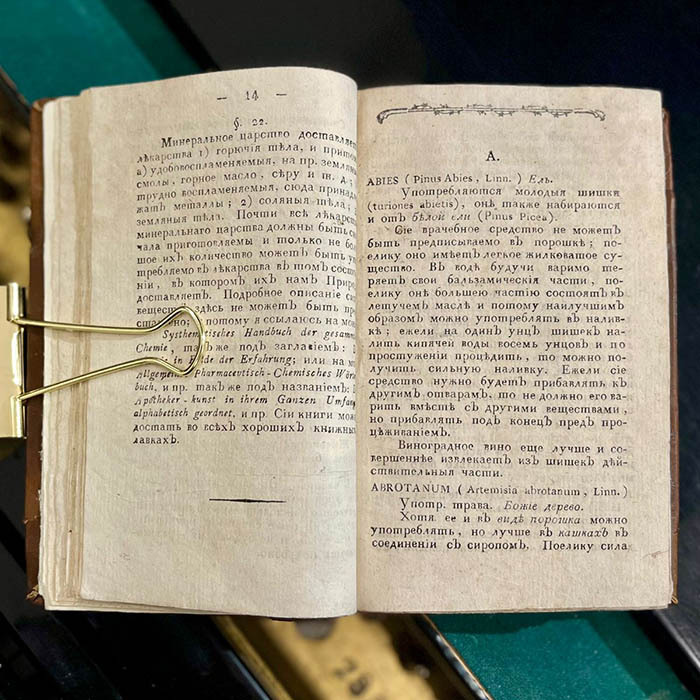 — 14 —
§. 22.
Минеральное царство доставляе
лѣкарства 1) горючія тѣла, и притом
а) удобовоспламеняемыя, на пр. земляны
смолы, горное масло, сѣру и т. д.;
трудно воспламеняемыя, сюда принад
жатъ металлы; 2) соляныя тѣла;
земляныя тѣла. Почти всѣ лѣкарст
минеральнаго царства должны быть с
чала приготовляемы и только не бол
шое ихъ количество можетъ быть у
требляемо въ лѣкарства въ томъ сост
ніи, въ которомъ ихъ намъ Приро
доставляетъ. Подробное описаніе си
веществъ здѣсь не можетъ быть пр
потому я ссылаюсь на мо
Systhematisches Handbuch der gesam
Chemie, также подъ заглавіемъ:
in Bilde der Erfahrung; или на
Allgemeines Pharmaceutisch-Chemisches Wört
buch, и пр. также подъ названіемъ:
Apotheker-kunst in ihrem Ganzen Umfang
alphabetisch geordnet, и пр. Сіи книги мож
достать во всѣхъ хорошихъ книжны
лавкахъ.
А.
ABIES (Pinus Abies, Linn.) Ель.
Употребляются молодыя шишки
(turiones abietis), онѣ также набираются
и отъ бѣлой ели (Pinus Picea).
Сіе врачебное средство не можетъ
быть предписываемо въ порошкѣ; по-
елику оно имѣетъ легкое жилковатое су-
щество. Въ водѣ будучи варимо те-
ряетъ свои бальзамическія части, по-
елику онѣ большею частію состоятъ въ
летучемъ маслѣ и потому наилучшимъ
образомъ можно употреблять въ налив-
кѣ; ежели на одинъ унцъ шишекъ на-
лить кипячей воды восемь унцовъ и по
простуженіи процѣдить, то можно по-
лучить сильную наливку. Ежели сіе
средство нужно будетъ прибавлять къ
другимъ отварамъ, то не должно его ва-
рить вмѣстѣ съ другими веществами,
но прибавлять подъ конецъ предъ про-
цѣживаніемъ.
Виноградное вино еще лучше и со-
вершеннѣе извлекаетъ изъ шишекъ дѣй-
ствительныя части.
ABROTANUM (Artemisia abrotanum, Linn.)
Упот. трава. Божіе дерево.
Хотя ее и въ видѣ порошка можно
употреблять, но лучше въ кашкахъ въ
соединеніи съ сиропомъ. Поелику сила
28